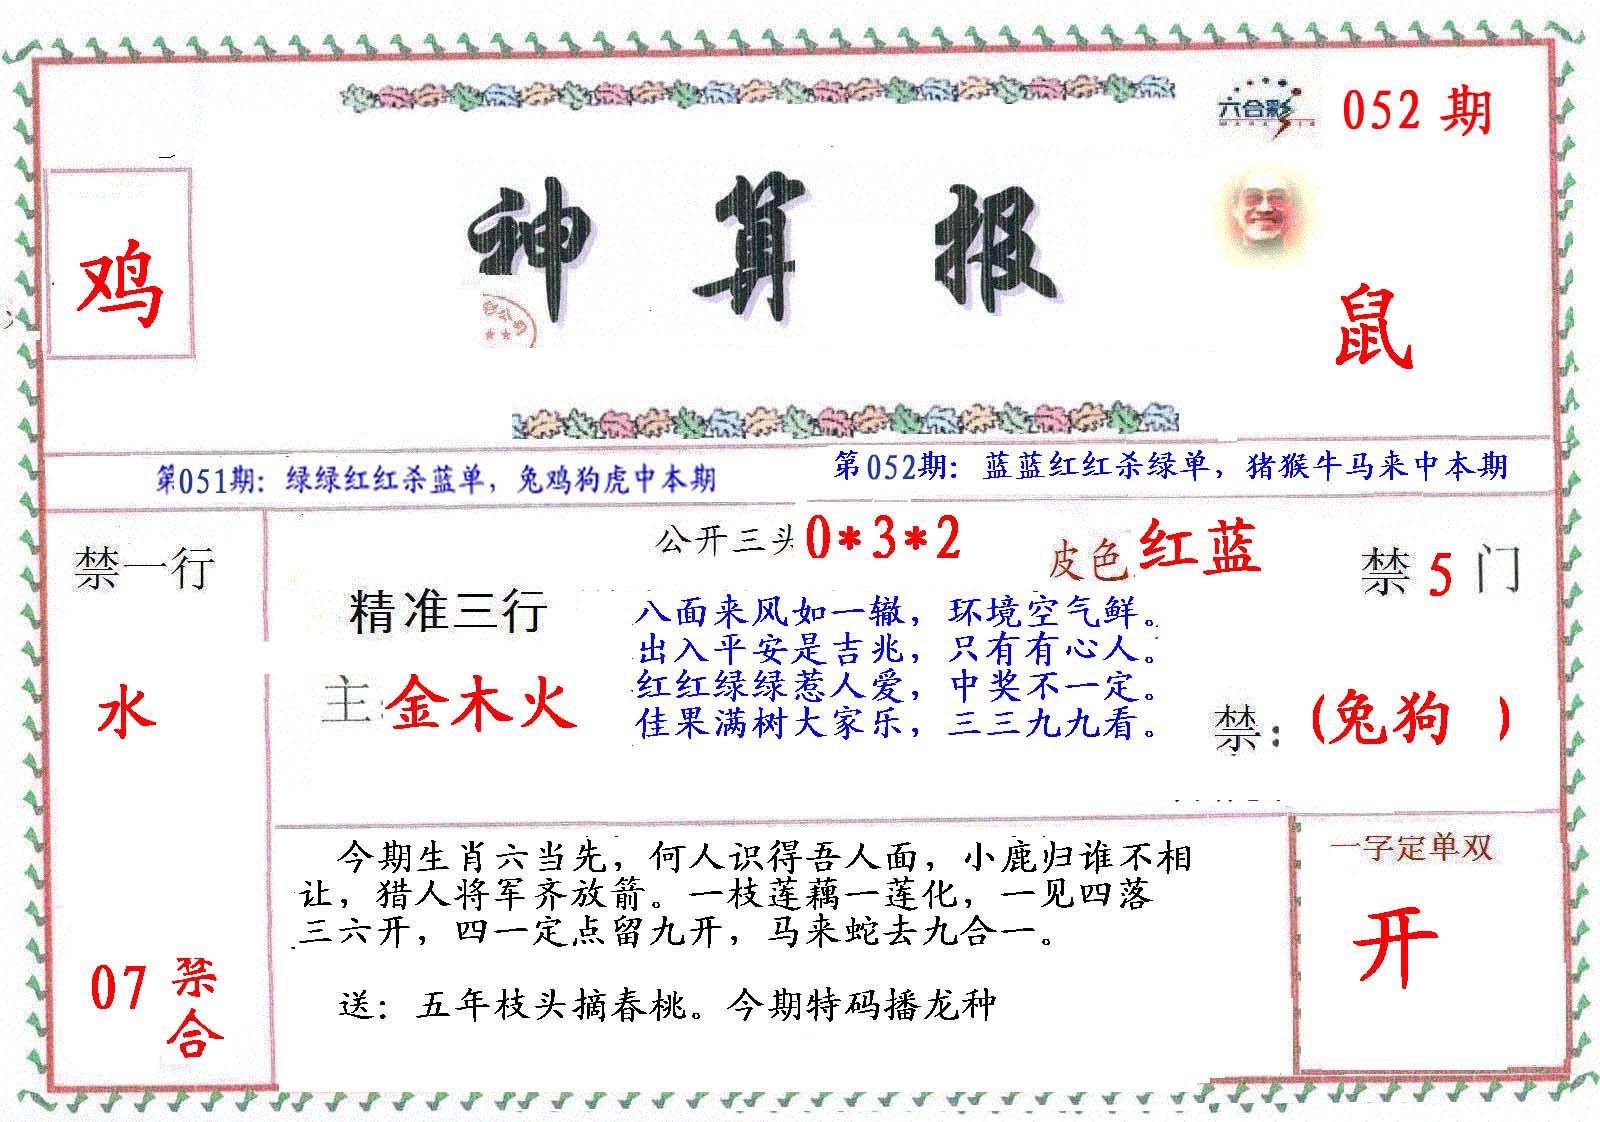 六合彩
052 期
鸡
神算报
鼠
第051期：绿绿红红杀蓝单，兔鸡狗虎中本期
第052期：蓝蓝红红杀绿单，猪猴牛马来中本期
禁一行
水
07 禁合
公开三头 0*3*2
皮色 红蓝
禁 5 门
精准三行
主: 金木火
八面来风如一辙，环境空气鲜。
出入平安是吉兆，只有有心人。
红红绿绿惹人爱，中奖不一定。
佳果满树大家乐，三三九九看。
禁：(兔狗 )
今期生肖六当先，何人识得吾人面，小鹿归谁不相
让，猎人将军齐放箭。一枝莲藕一莲化，一见四落
三六开，四一定点留九开，马来蛇去九合一。
送：五年枝头摘春桃。今期特码播龙种
一字定单双
开